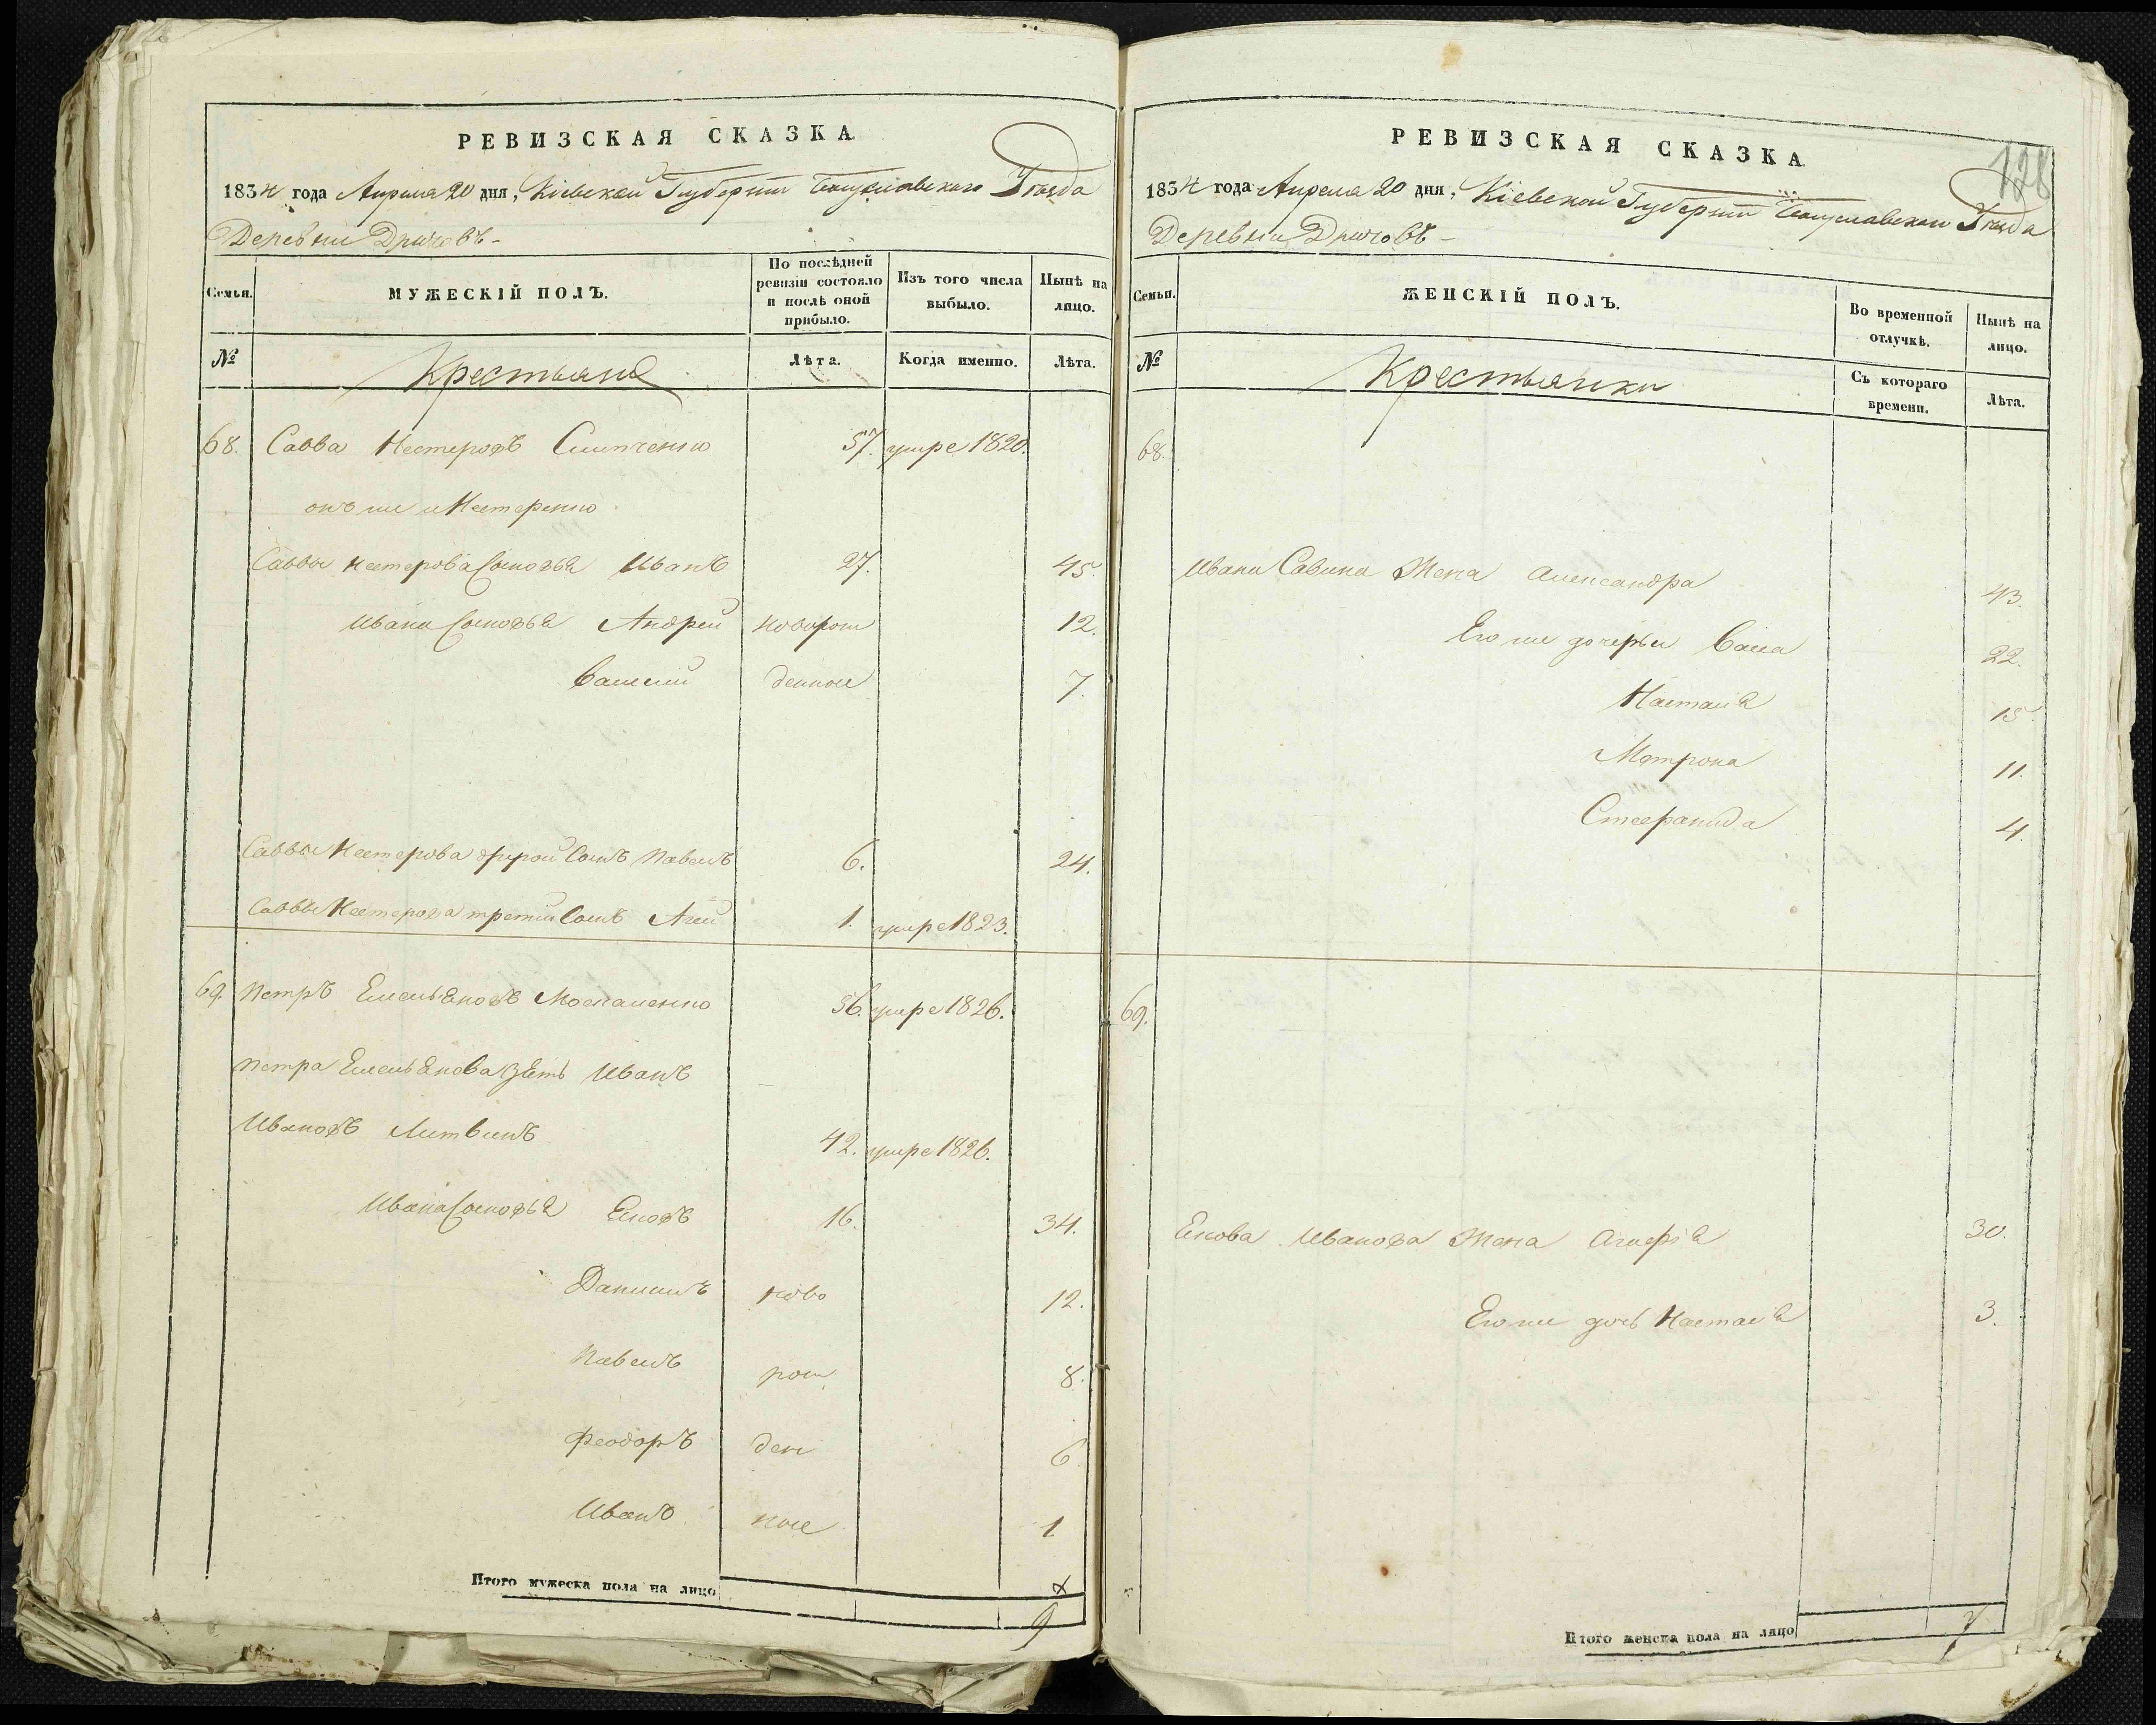 РЕВИЗСКАЯ СКАЗКА
1834 года Апреля 20 дня, Кіевской Губерніи Богуславскаго Уѣзда
Деревни
Семьи.
МУЖЕСКІЙ ПОЛЪ.
По послѣдней ревизіи состояло и послѣ оной прибыло.
Изъ того числа выбыло.
Нынѣ на лицо.
№
Крестьяне
Лѣта.
Когда именно.
Лѣта.
68. Савва Нестеровъ 57. умре 1820.
онъ же и Нестеренко
Саввы Нестерова Сыновья Иванъ 27. 45.
Ивана Сыновья Андрей новорож 12.
Василій денные 7.
Саввы Нестерова другой Сынъ Павелъ 6. 24.
Саввы Нестерова третій Сынъ 1. умре 1823.
69. Петръ Емельяновъ Москаленко 56. умре 1826.
Петра Емельянова Зять Иванъ
Ивановъ Литвинъ 42. умре 1826.
Ивана Сыновья Яковъ 16. 34.
Данилъ ново 12.
Павелъ рож 8.
Феодоръ ден 6
Иванъ ные 1
Итого мужеска пола на лицо
9
РЕВИЗСКАЯ СКАЗКА
128
1834 года Апреля 20 дня, Кіевской Губерніи Богуславскаго Уѣзда
Деревни
Семьи.
ЖЕНСКІЙ ПОЛЪ.
Во временной отлучкѣ.
Нынѣ на лицо.
№
Крестьянки
Съ котораго времени.
Лѣта.
68.
Ивана Савина Жена Александра 43.
Его же дочерьи 22.
Настасія 15.
Мотрона 11.
Стефанида 4.
69.
Якова Иванова Жена 30.
Его же дочь Настасія 3.
Итого женска пола на лицо
7